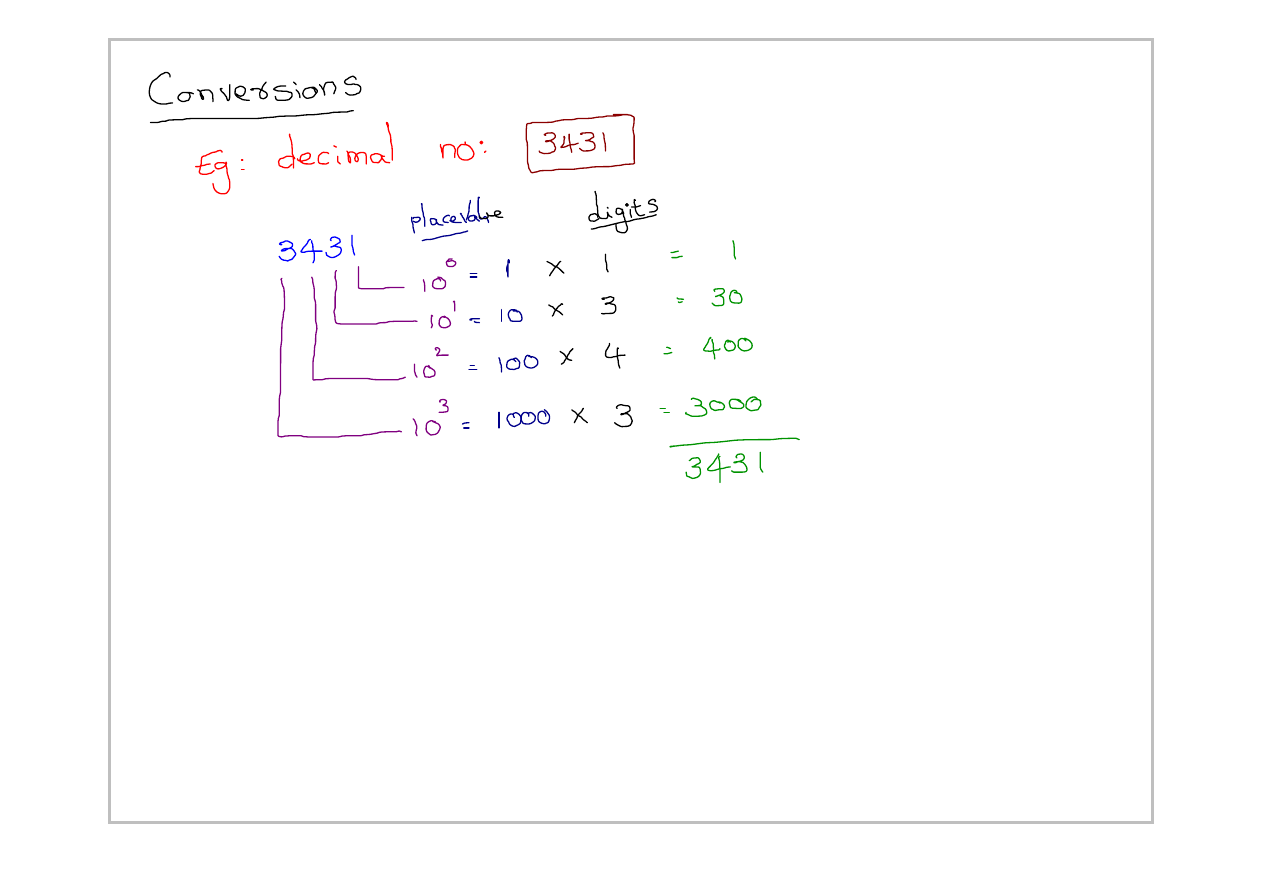 Conversions
Eg: decimal no: 3431
placevalue digits
3431
10^0 = 1 × 1 = 1
10^1 = 10 × 3 = 30
10^2 = 100 × 4 = 400
10^3 = 1000 × 3 = 3000
3431